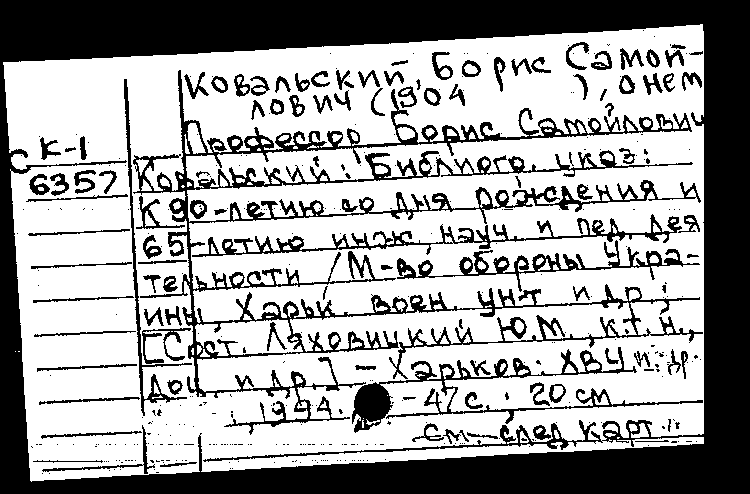 Ковальский, Борис Самой-
лович (1904 ), о нем
С К-1
6357
Профессор Борис Самойлович
Ковальский: Библиогр. указ:
К 90-летию со дня рождения и
65-летию инж. науч. и пед. дея
тельности / М-во обороны Укра-
ины, Харьк. воен. ун-т и др.;
[Сост. Ляховицкий Ю.М., к.т.н.,
доц. и др.] - Харьков: ХВУ и др.
, 1994. - 47 с.; 20 см.
см. след. карт.